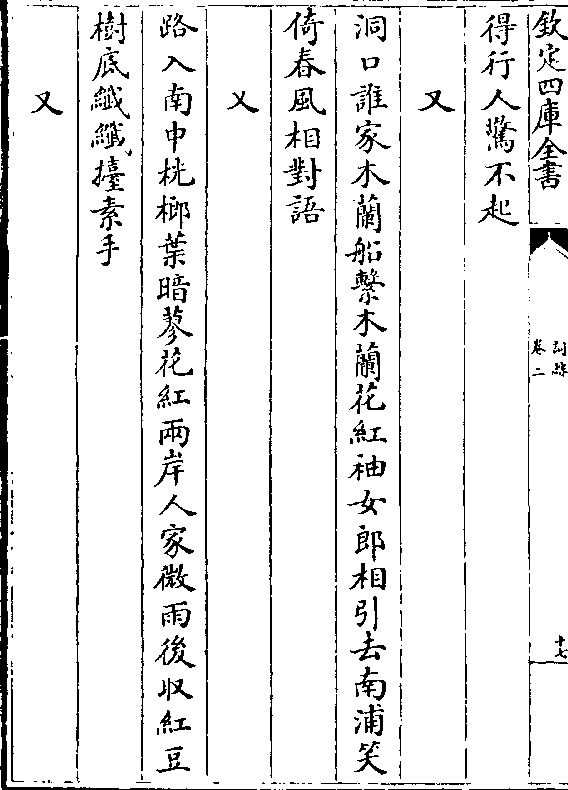 欽定四庫全書
詞綜
卷二
十七
得行人驚不起
又
洞口誰家木蘭船繫木蘭花紅袖女郎相引去南浦笑
倚春風相對語
又
路入南中桄榔葉暗蓼花紅兩岸人家微雨後収紅豆
樹底纖纖擡素手
又